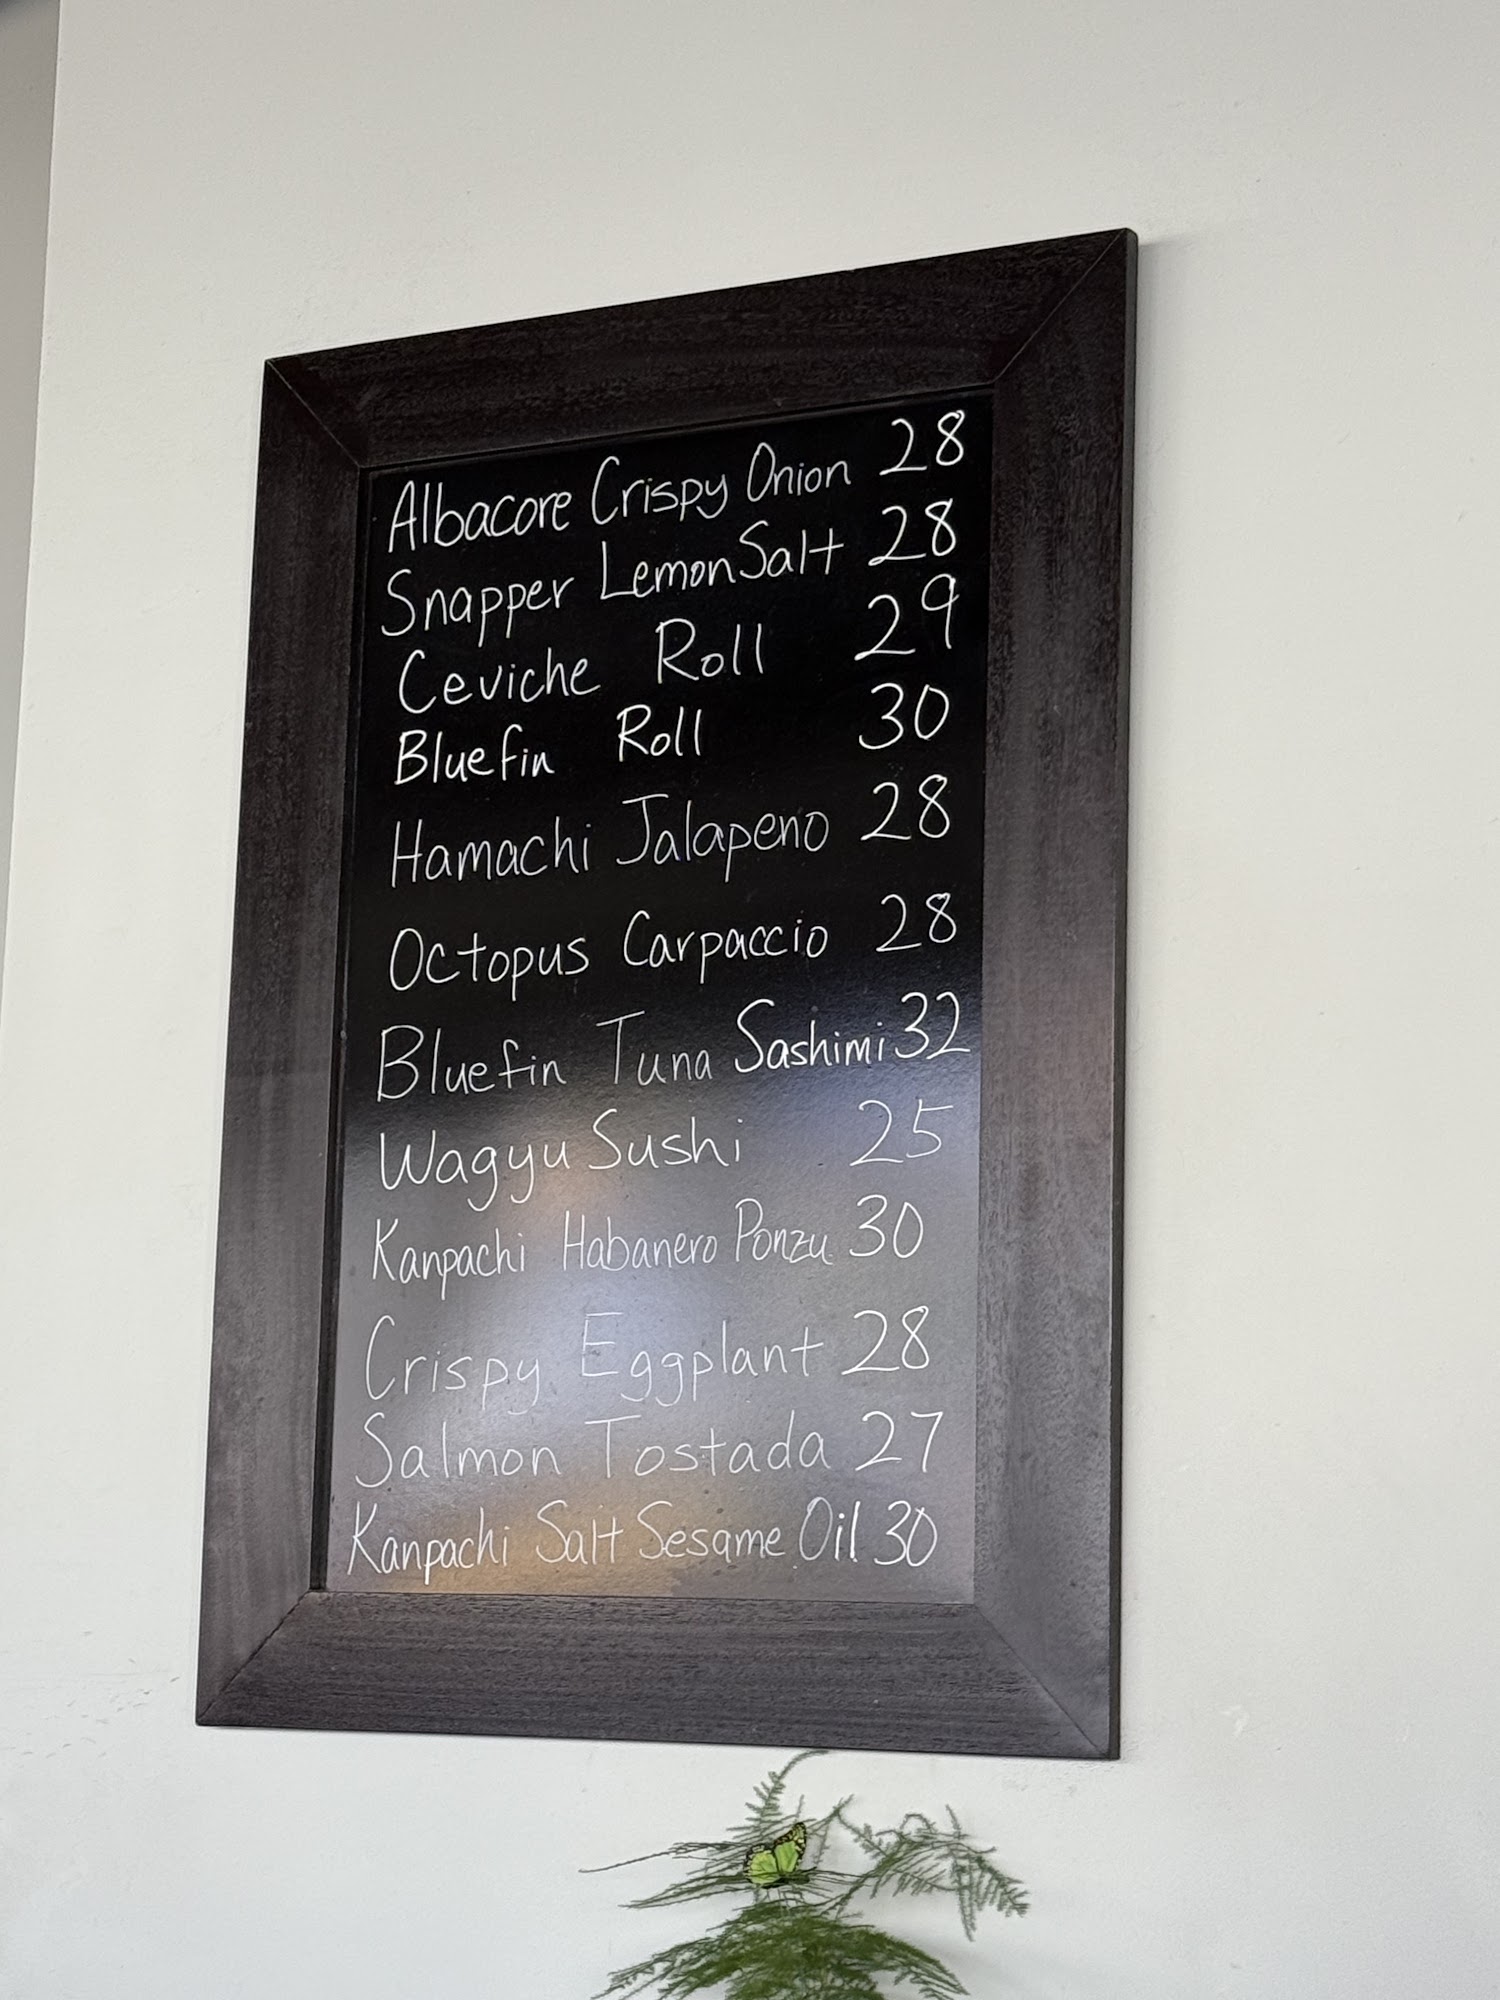 Albacore Crispy Onion 28
Snapper Lemon Salt 28
Ceviche Roll 29
Bluefin Roll 30
Hamachi Jalapeno 28
Octopus Carpaccio 28
Bluefin Tuna Sashimi 32
Wagyu Sushi 25
Kanpachi Habanero Ponzu 30
Crispy Eggplant 28
Salmon Tostada 27
Kanpachi Salt Sesame Oil 30